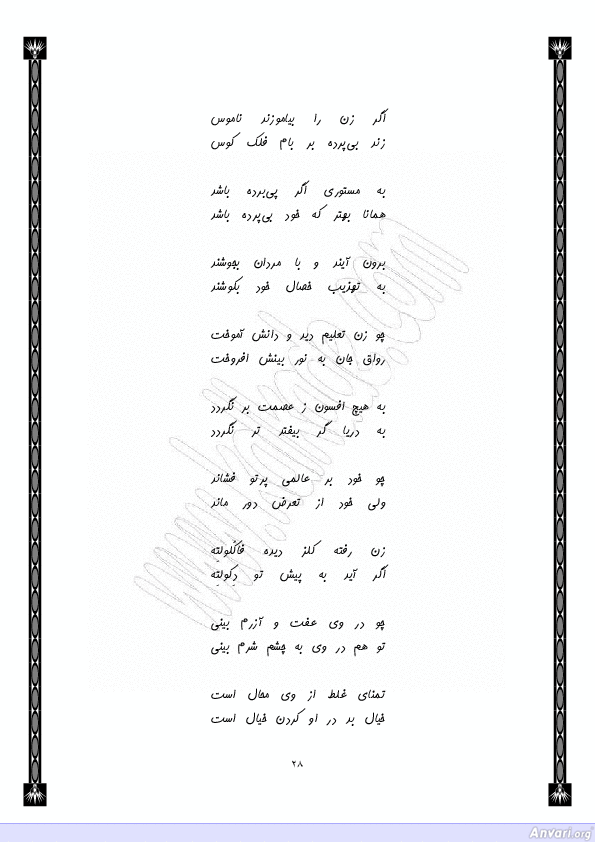 اگر زن را بیاموزند ناموس
زند بی‌پرده بر بام فلک کوس
به مستوری اگر پی‌برده باشد
همانا بهتر که خود بی‌پرده باشد
برون آیند و با مردان بجوشند
به تهذیب خصال خود بکوشند
چو زن تعلیم دید و دانش آموخت
رواق جان به نور بینش افروخت
به هیچ افسون ز عصمت بر نگردد
به دریا گر بیفتد تر نگردد
چو خود بر عالمی پرتو فشاند
ولی خود از تعرض دور ماند
زن رفته کلژ دیده فاکُلولتِه
اگر آید به پیش تو دِکولتِه
چو در وی عفت و آزرم بینی
تو هم در وی به چشم شرم بینی
تمنای غلط از وی محال است
خیال بد در او کردن خیال است
۲۸
Anvari.org